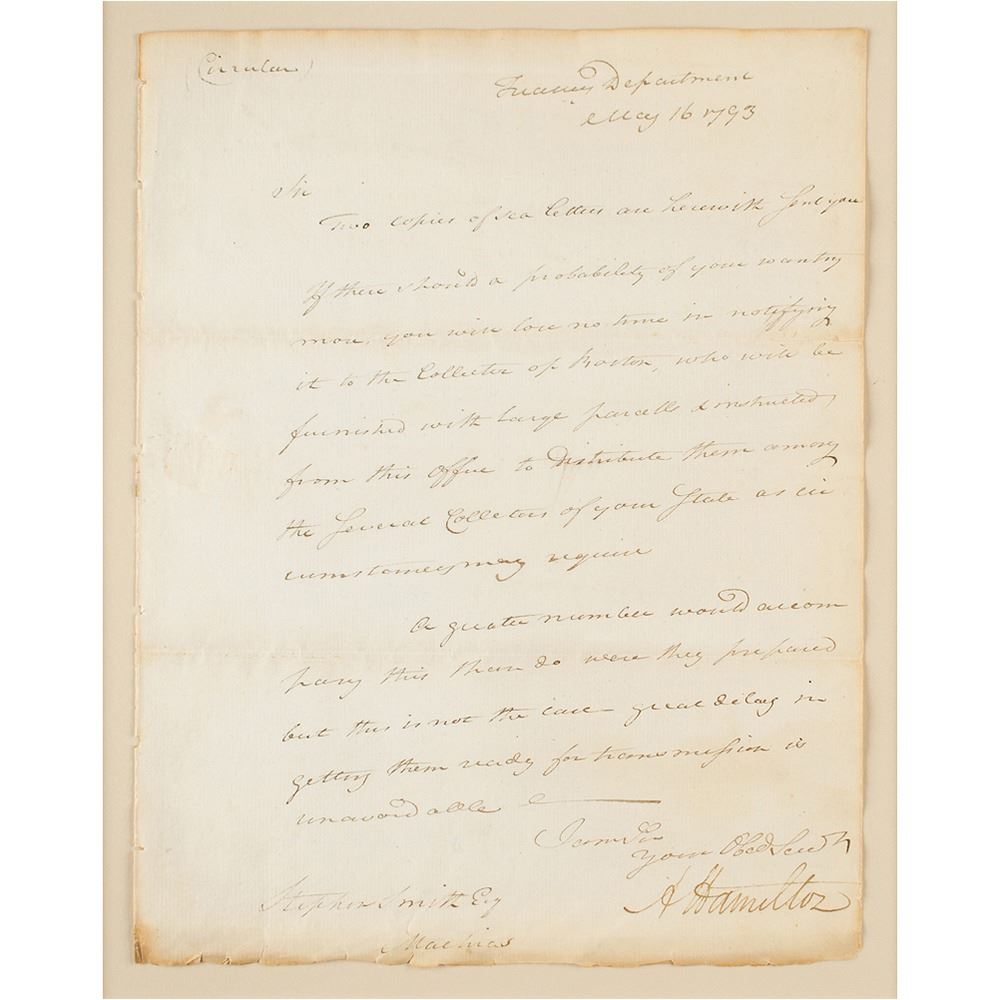 (Circular)
Treasury Department
May 16 1793
Sir
Two copies of sea letters are herewith sent you
If there should a probability of your wanting
more, you will lose no time in notifying
it to the Collector of Boston, who will be
furnished with large parcells & instructed
from this Office to Distribute them among
the several Collectors of your State as cir
cumstances may require
A greater number would accom
pany this than do were they prepared
but this is not the case great delay in
getting them ready for transmission is
unavoidable
I am Sir
Your Obed Servt
A Hamilton
Stephen Smith Esq
Machias